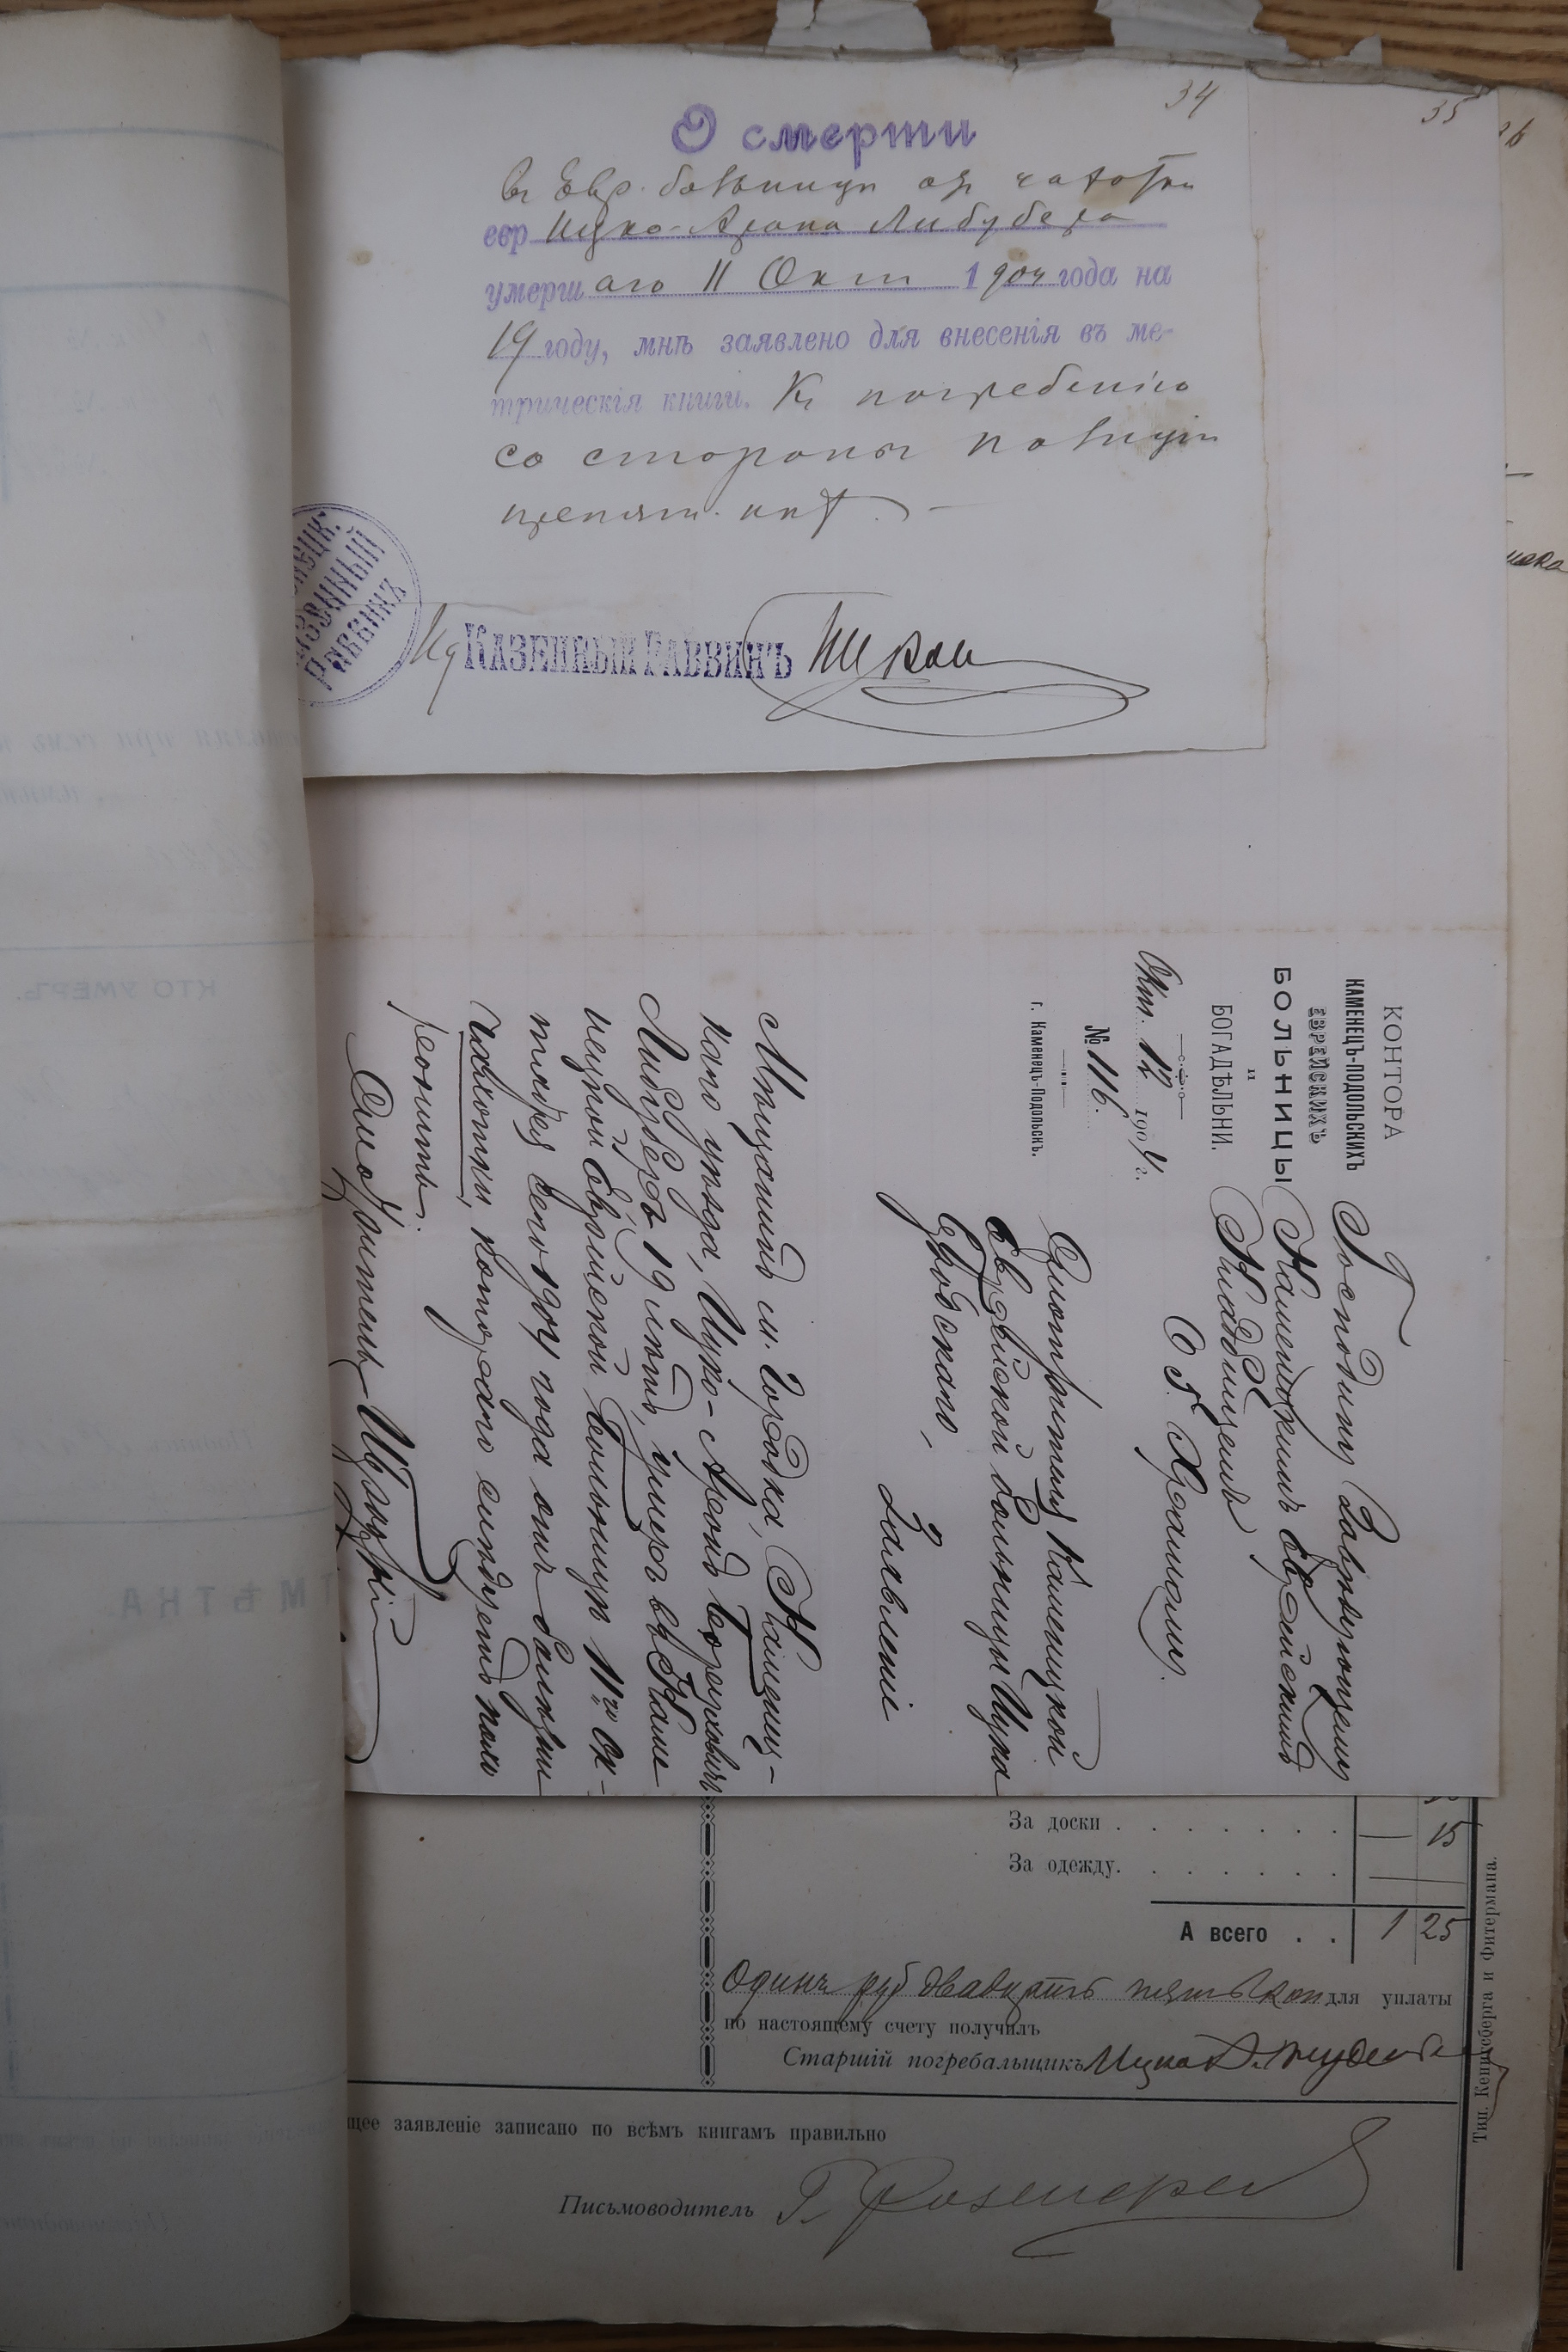 34
35
О смерти
въ Евр. больницѣ отъ чахотки
евр Ицко-Арона Либубера
умершаго 11 Окт 1904 года на
19 году, мнѣ заявлено для внесенія въ ме-
трическія книги. Къ погребенію
со стороны полиціи
препят. нѣт. –
КАЗЕННЫЙ РАВВИНЪ
И д КАЗЕННЫЙ РАВВИНЪ
КОНТОРА
КАМЕНЕЦЪ-ПОДОЛЬСКИХЪ
ЕВРЕЙСКИХЪ
БОЛЬНИЦЫ
и
БОГАДѢЛЬНИ.
Окт. 12 1904 г.
№ 116.
г. Каменецъ-Подольскъ.
Господину Завѣдующему
Каменецкимъ Еврейскимъ
Кладбищемъ
О. Г. Храмому.
Смотрителя Каменецкой
Еврейской больницы Ицка
Заявленіе
Мѣщанинъ м. Городка, Каменец-
каго уѣзда, Ицко-Аронъ Берковичъ
Либуберъ 19 лѣтъ, умеръ въ Каме
нецкой Еврейской больницѣ 11го Ок-
тября сего 1904 года отъ болѣзни
чахотки, котораго слѣдуетъ похо
ронить.
Смотритель
КТО УМЕРЪ.
ТМѢТКА
За доски . . . . . . . — 15
За одежду. . . . . . . —
А всего . . 1 25
Одинъ руб двадцать пять коп для уплаты
по настоящему счету получилъ
Старшій погребальщикъ Ицка
щее заявленіе записано по всѣмъ книгамъ правильно
Письмоводитель
Тип. Кенигсберга и Фитермана.